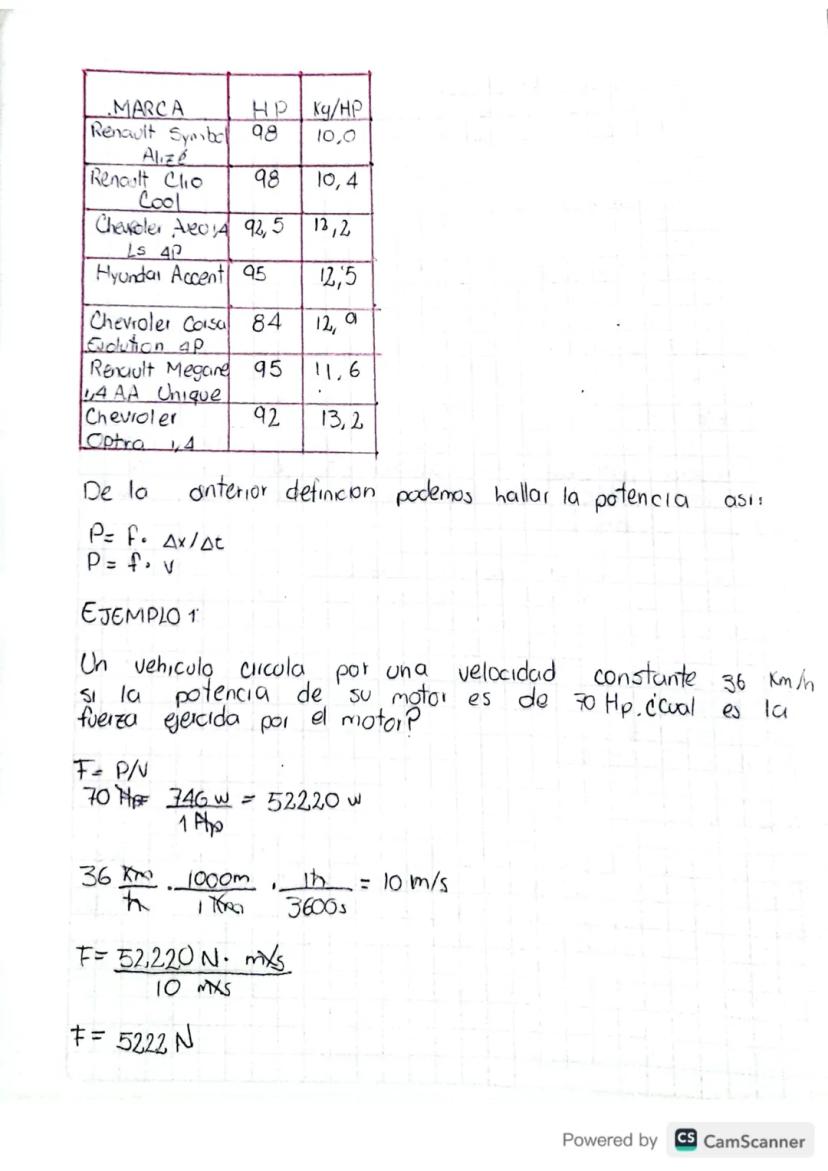 MARCA HP Kg/HP
Renault Symbol 98 10,0
Alizé
Renault Clio 98 10,4
Cool
Chevroler Aeo 1,4 92,5 13,2
Ls 4P
Hyundai Accent 95 12,5
Chevroler Corsa 84 12,9
Evolution 4P
Renault Megane 95 11,6
1,4 AA Unique
Chevroler 92 13,2
Optra 1,4
De la anterior definicion podemos hallar la potencia asi:
P= f. Δx/Δt
P= f. v
EJEMPLO 1
Un vehiculo circula por una velocidad constante 36 Km/h
si la potencia de su motor es de 70 Hp. ¿cual es la
fuerza ejercida por el motor?
F= P/V
70 Hp 746 w = 52220 w
1 Hp
36 Km . 1000m . 1h = 10 m/s
h 1 Km 3600s
F= 52,220 N. m/s
10 m/s
F= 5222 N
Powered by CS CamScanner